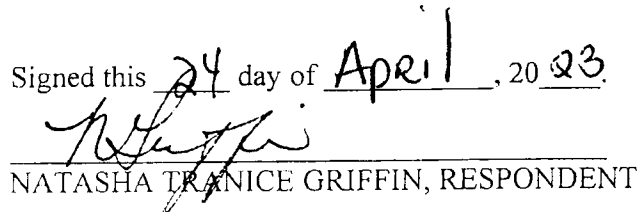 Signed this 24 day of April, 20 23.
N Griffin
NATASHA TRANICE GRIFFIN, RESPONDENT